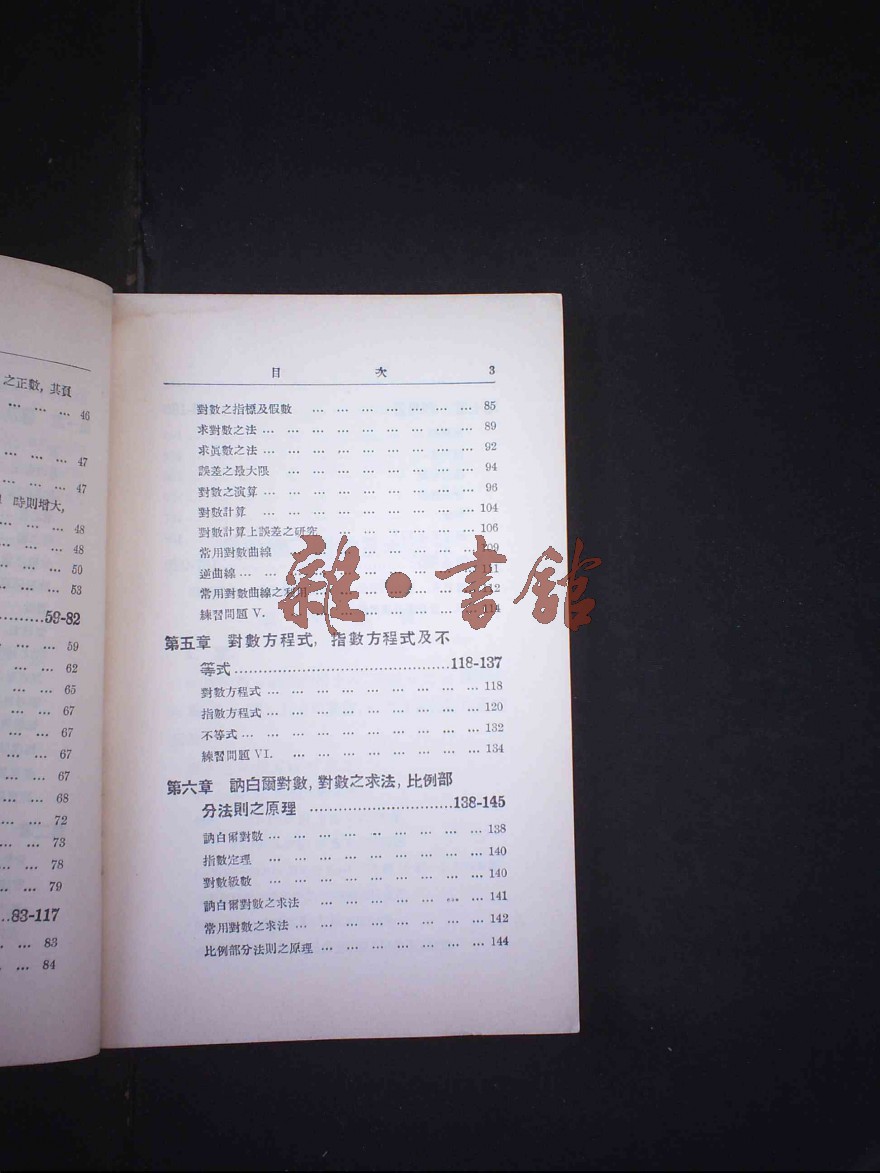 之正數, 其頁
… … … 46
… … … 47
… … … 47
時則增大,
… … … 48
… … … 48
… … … 50
… … … 53
………59-82
… … … 59
… … … 62
… … … 65
… … … 67
… … … 67
… … … 67
… … … 67
… … … 68
… … … 72
… … … 73
… … … 78
… … … 79
…83-117
… … 83
… … 84
目 次 3
對數之指標及假數 … … … … … … … 85
求對數之法 … … … … … … … … … 89
求眞數之法 … … … … … … … … … 92
誤差之最大限 … … … … … … … … 94
對數之演算 … … … … … … … … … 96
對數計算 … … … … … … … … … 104
對數計算上誤差之研究 … … … … … … 106
常用對數曲線 … … … … … … … … 109
逆曲線 … … … … … … … … … … 111
常用對數曲線之利用 … … … … … … … 112
練習問題 V. … … … … … … … … 114
第五章 對數方程式, 指數方程式及不
等式……………………………118-137
對數方程式 … … … … … … … … … 118
指數方程式 … … … … … … … … … 120
不等式 … … … … … … … … … … 132
練習問題 VI. … … … … … … … … 134
第六章 訥白爾對數, 對數之求法, 比例部
分法則之原理 …………………138-145
訥白爾對數 … … … … … … … … … 138
指數定理 … … … … … … … … … 140
對數級數 … … … … … … … … … 140
訥白爾對數之求法 … … … … … … … 141
常用對數之求法 … … … … … … … … 142
比例部分法則之原理 … … … … … … … 144
雜·書館